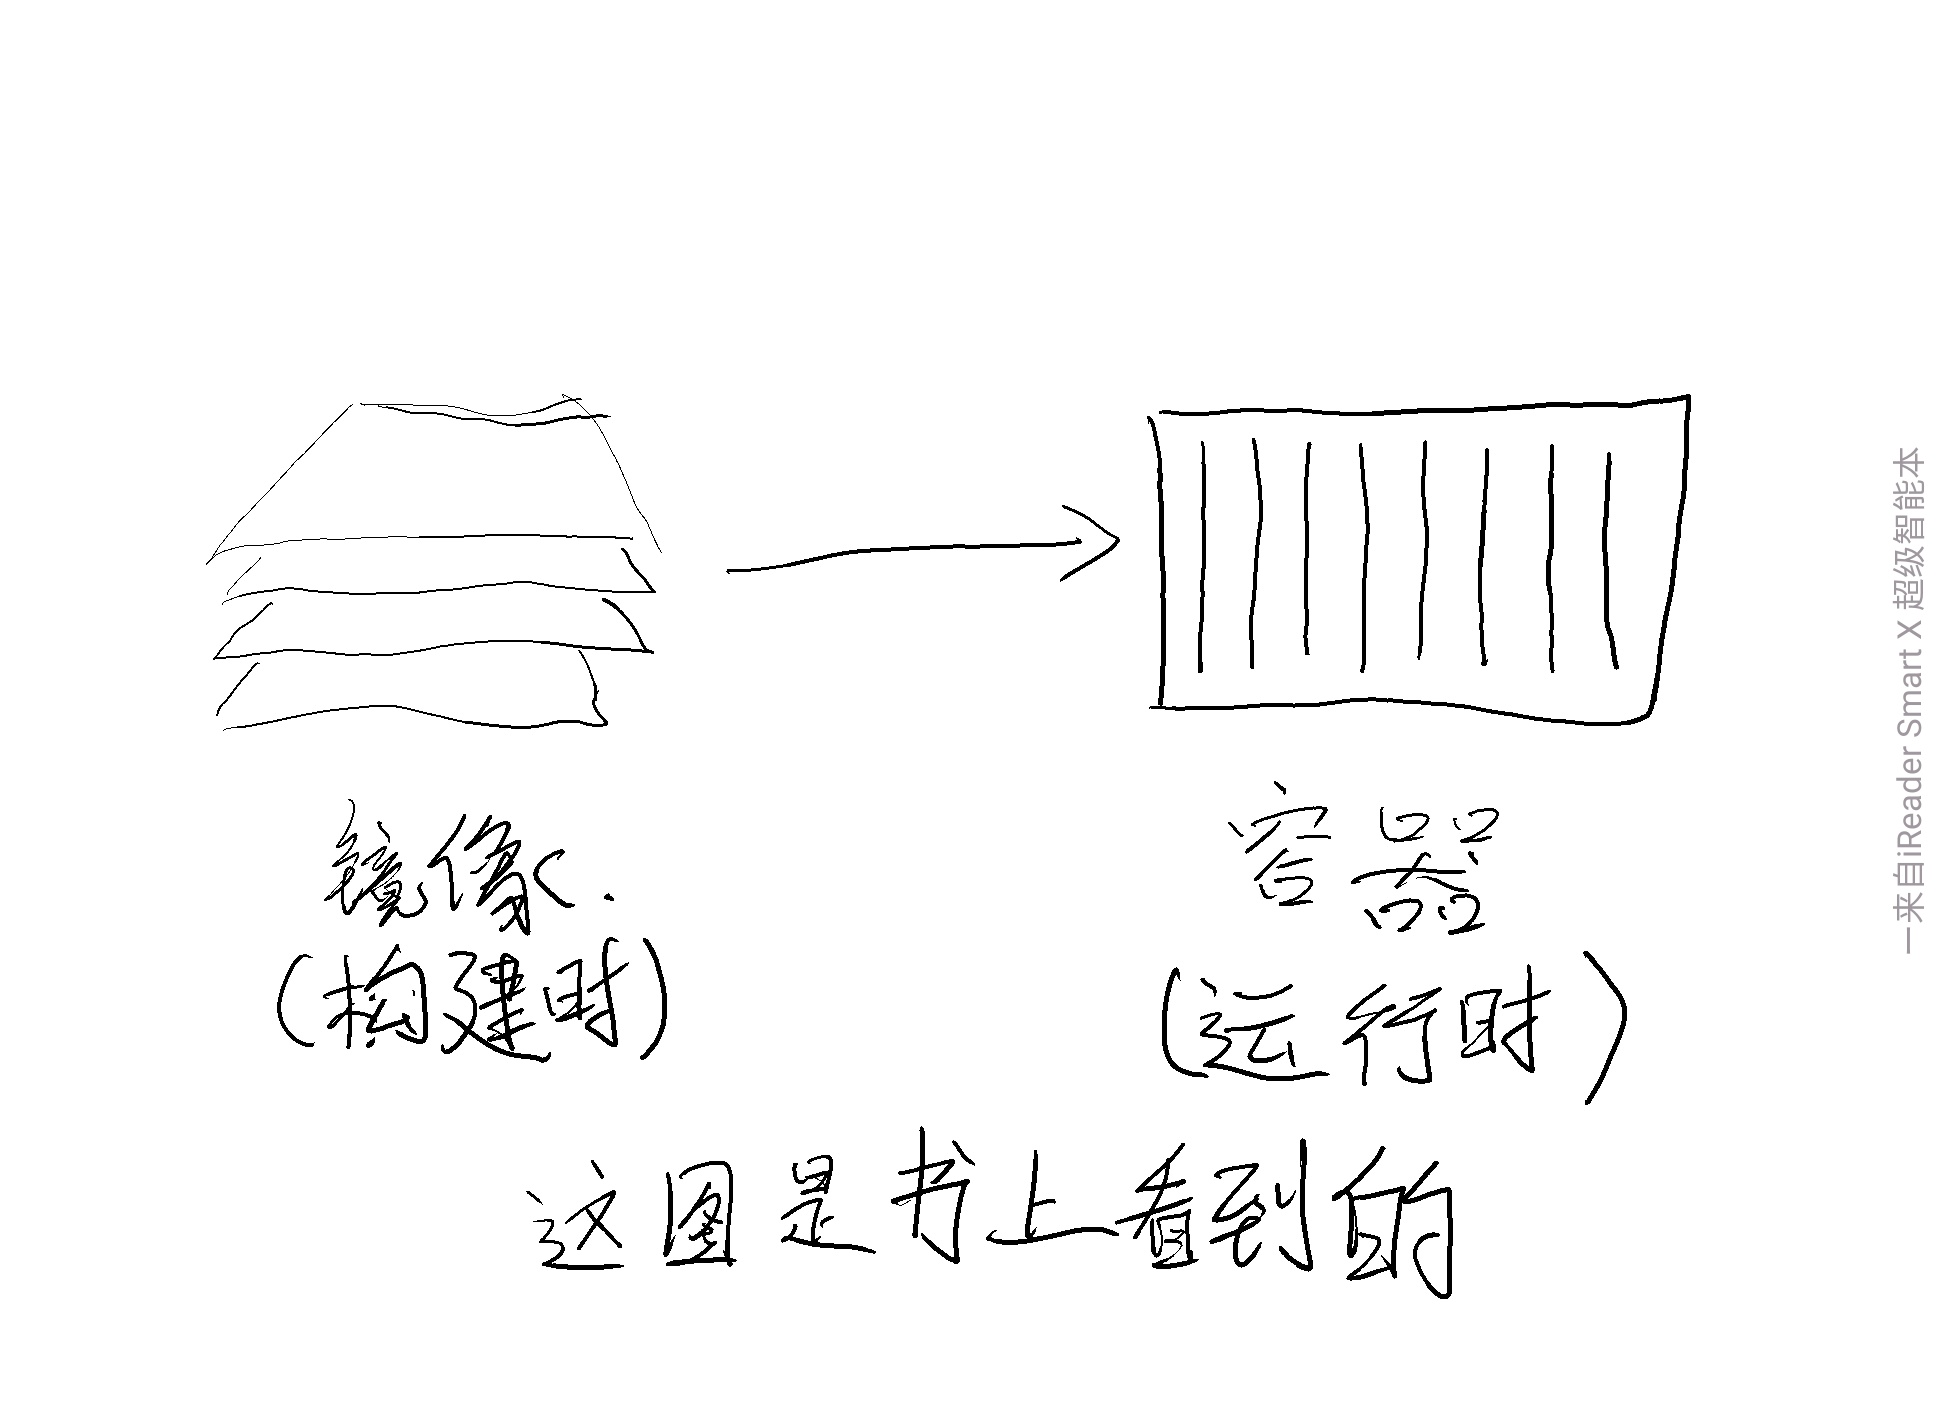 镜像.
容器
(构建时)
(运行时)
这图是书上看到的
—来自iReader Smart X 超级智能本